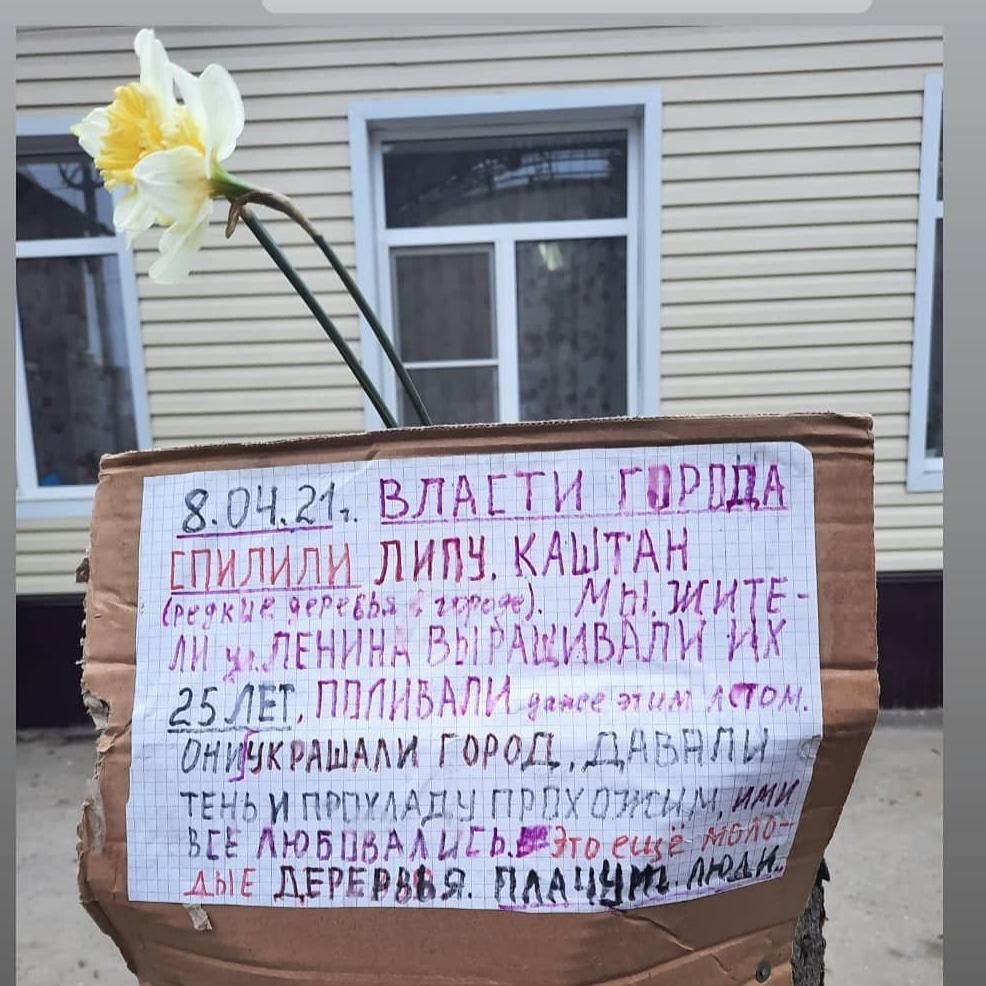 8.04.21г. ВЛАСТИ ГОРОДА
СПИЛИЛИ ЛИПУ, КАШТАН
(редкие деревья в городе). МЫ, ЖИТЕ-
ЛИ ул. ЛЕНИНА ВЫРАЩИВАЛИ ИХ
25 ЛЕТ, ПОЛИВАЛИ даже этим летом.
ОНИ УКРАШАЛИ ГОРОД, ДАВАЛИ
ТЕНЬ И ПРОХЛАДУ ПРОХОЖИМ, ИМИ
ВСЕ ЛЮБОВАЛИСЬ. Это ещё МОЛО-
ДЫЕ ДЕРЕРВЬЯ. ПЛАЧУТ ЛЮДИ..